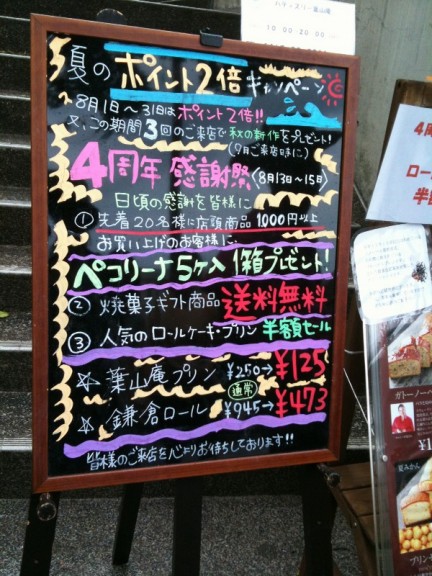 パティスリー葉山庵
10:00-20:00
夏のポイント2倍キャンペーン
8月1日〜31日はポイント2倍!!
又、この期間3回のご来店で秋の新作をプレゼント!
(9月ご来店時に)
4周年 感謝祭 (8月13日〜15日)
日頃の感謝を皆様に
① 先着20名様に店頭商品1000円以上
お買い上げのお客様に
ペコリーナ5ケ入 1箱プレゼント!
② 焼菓子ギフト商品 送料無料
③ 人気のロールケーキ・プリン 半額セール
☆ 葉山庵プリン ¥250→¥125
通常
☆ 鎌倉ロール ¥945→¥473
皆様のご来店を心よりお待ちしております!!
4周
ロー
半額
ガトーノーベ
夏みかん
プリン